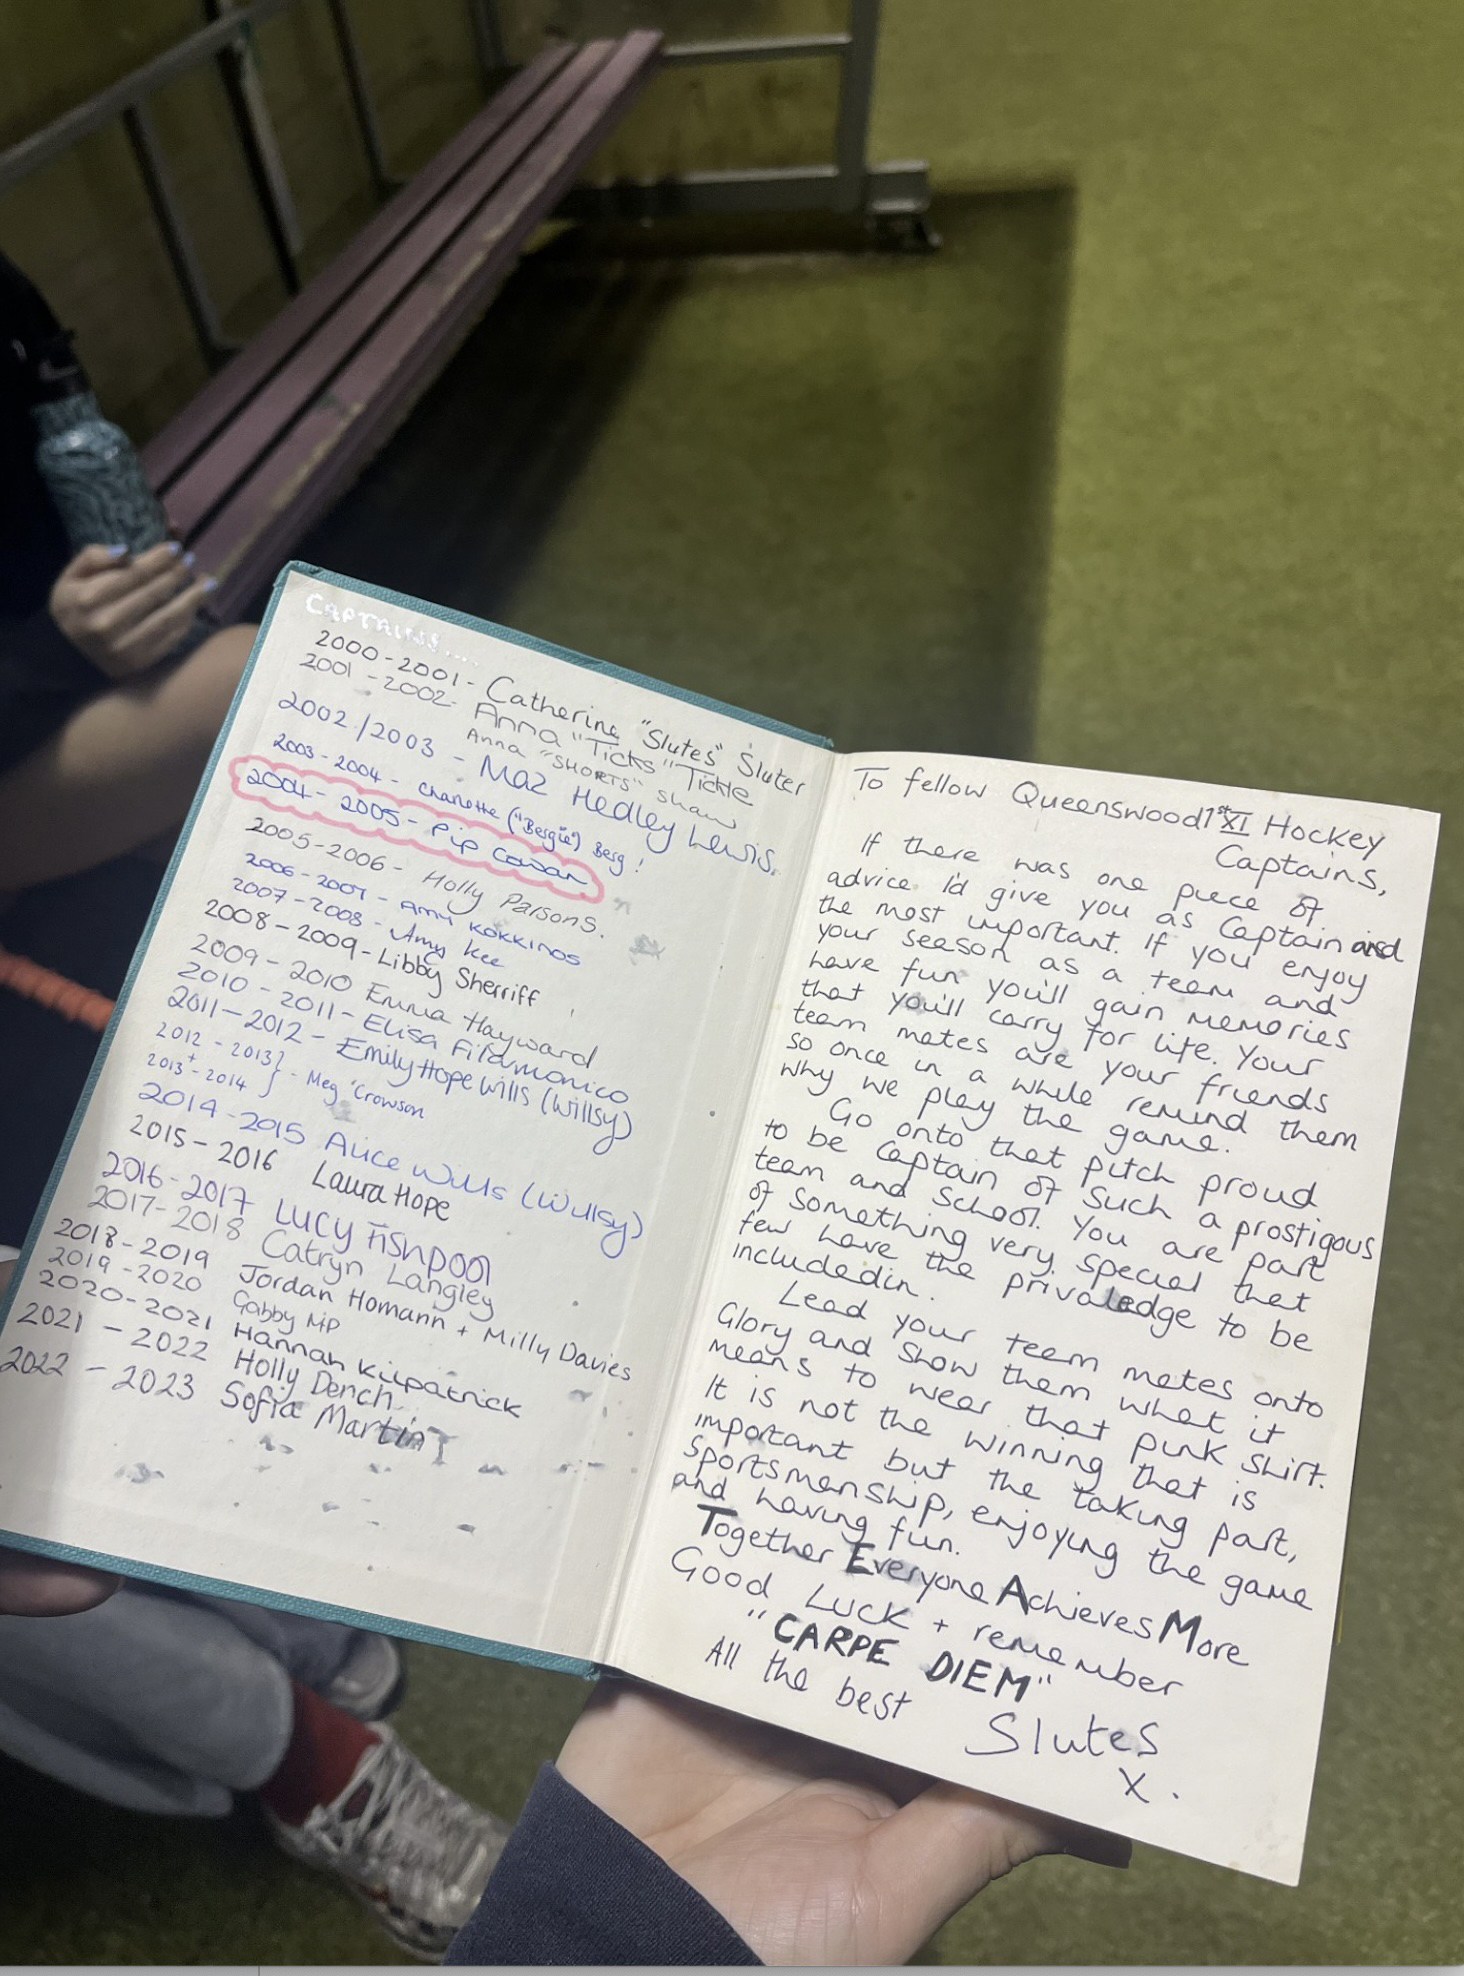 CAPTAINS....
2000-2001 - Catherine "Slutes" Sluter
2001-2002 - Anna "Ticks" Tickle
Anna "SHORTS" Shaw
2002/2003 - Maz Hedley Lewis.
2003-2004 - Charlotte ("Bergie") Berg!
2004-2005 - Pip Cowan
2005-2006 - Holly Parsons.
2006-2007 - Amy Kokkinos
2007-2008 - Amy Kee
2008-2009 - Libby Sherriff
2009-2010 Emma Hayward
2010-2011 - Elisa Filomonico
2011-2012 - Emily Hope Wills (Willsy)
2012-2013 }
2013+-2014 } - Meg Crowson
2014-2015 Alice Wills (Willsy)
2015-2016 Laura Hope
2016-2017 Lucy Fishpool
2017-2018 Catryn Langley
2018-2019 Jordan Homann + Milly Davies
2019-2020 Gabby MP
2020-2021 Hannah Kilpatrick
2021-2022 Holly Dench
2022-2023 Sofia Martin
To fellow Queenswood 1st XI Hockey
Captains,
If there was one piece of
advice I'd give you as Captain and
the most important. If you enjoy
your season as a team and
have fun you'll gain memories
that you'll carry for life. Your
team mates are your friends
so once in a while remind them
why we play the game.
Go onto that pitch proud
to be Captain of such a prostigous
team and School. You are part
of something very special that
few have the privaledge to be
includedin.
Lead your team mates onto
Glory and show them what it
means to wear that pink shirt.
It is not the winning that is
important but the taking part,
sportsmenship, enjoying the game
and having fun.
Together Everyone Achieves More
Good Luck + remember
"CARPE DIEM"
All the best
Slutes
x.